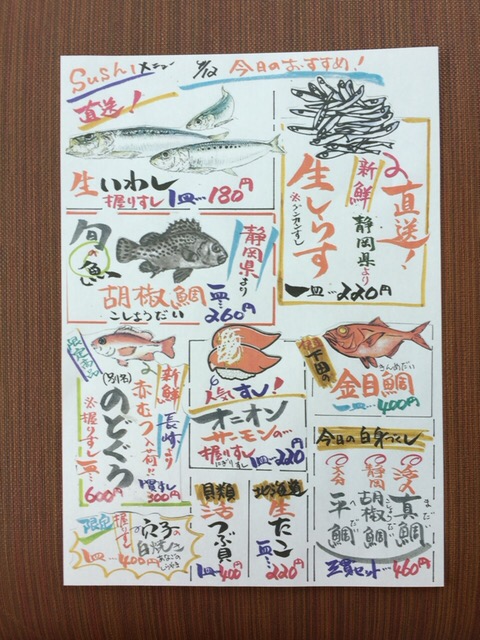 Sushiメニュー 今日のおすすめ!
直送!
生いわし
握りすし 一皿… 180円
直送!
新鮮 静岡県より
生しらす
※グンカンすし
一皿…220円
旬の魚
静岡県より
胡椒鯛
こしょうだい
一皿…260円
新鮮 長崎より
赤むつ入荷!!
(別名)
のどぐろ
※握りすし
一皿…600円
一貫すし 300円
人気すし!
オニオン
サーモンの…
握りすし
にぎりすし
一皿…220円
下田の
きんめだい
金目鯛
一皿…400円
今日の白身づくし
活の真鯛
まだい
静岡 胡椒鯛
平鯛
三貫セット…460円
限定
握りすし
穴子の白焼
あなごのしらやき
一皿…400円
貝類
活つぶ貝
一皿…400
北海道
生たこ
一皿…220円